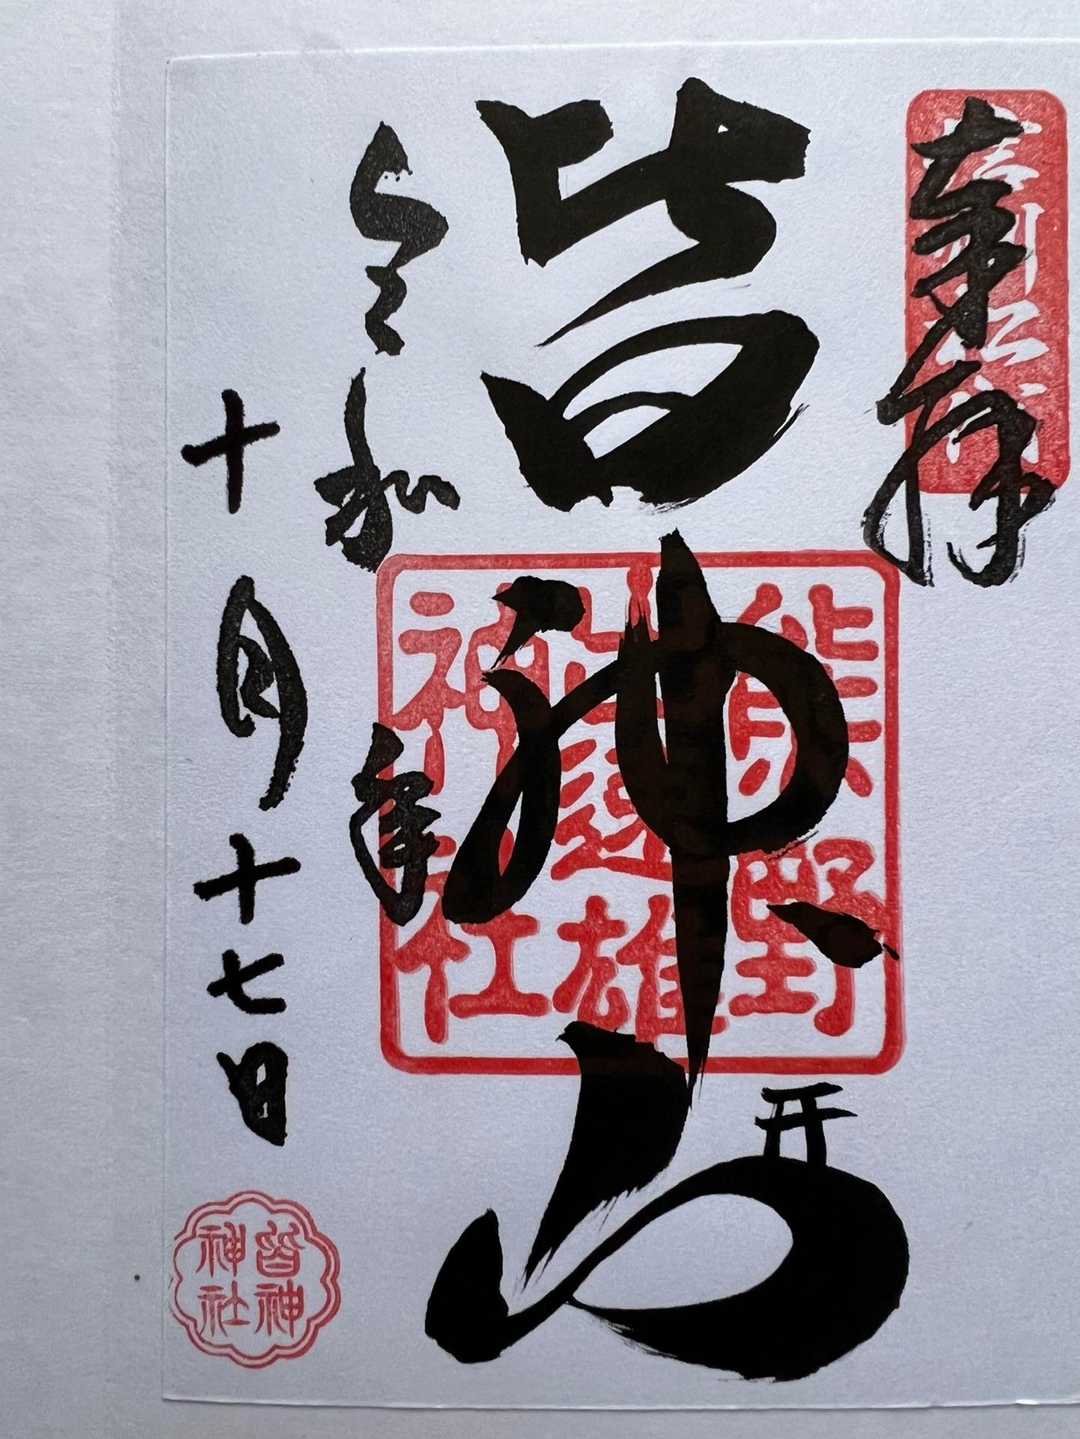 奉拝
信州松代
皆神山
熊野
出速雄
神社
令和 年
十月十七日
皆神
神社